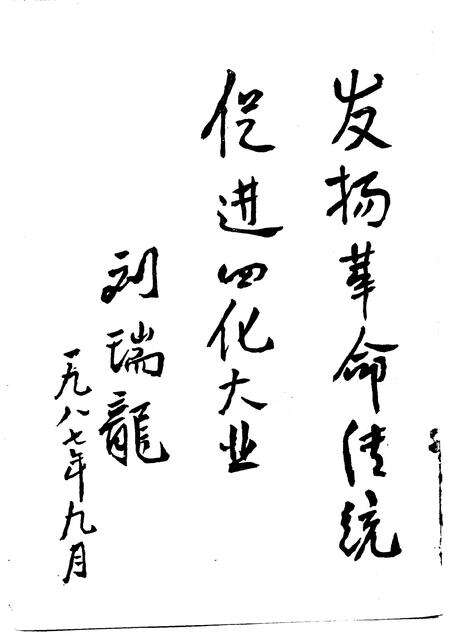 发扬革命传统
促进四化大业
刘瑞龍
一九八七年九月